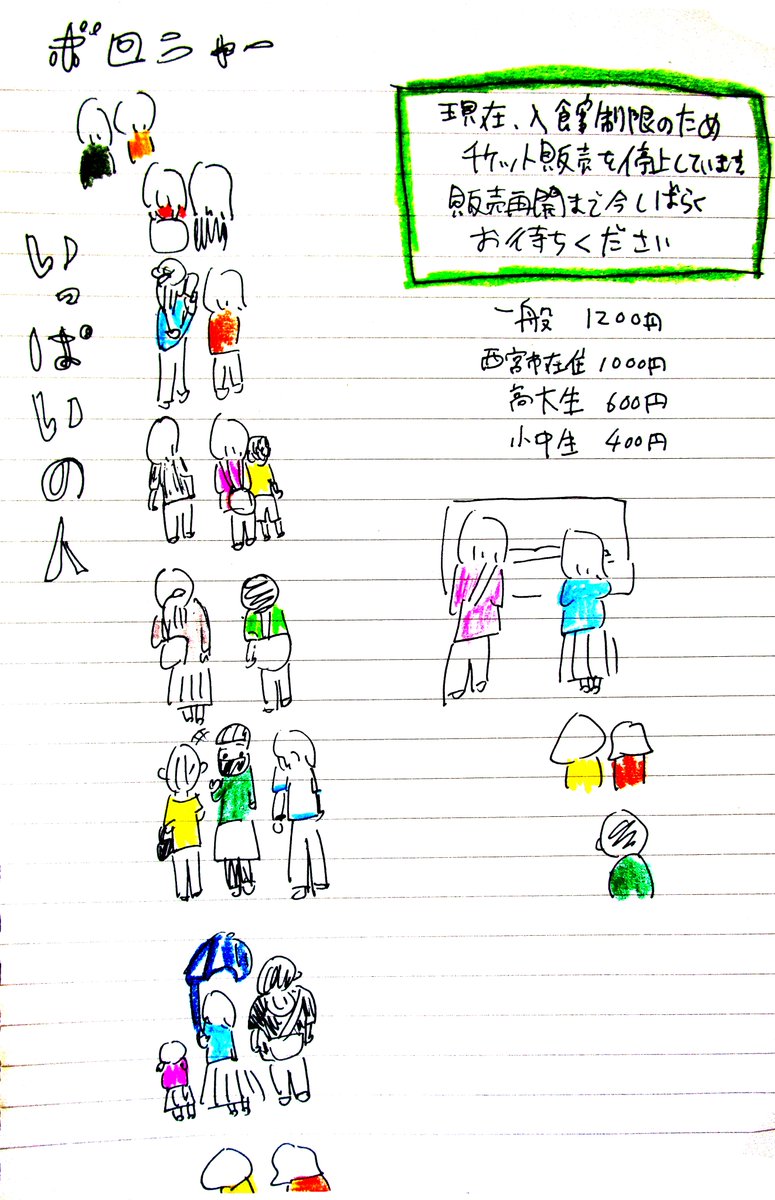 ボローニャー
いっぱいの人
現在、入館制限のため
チケット販売を停止しています
販売再開まで今しばらく
お待ちください
一般 1200円
西宮市在住 1000円
高大生 600円
小中生 400円